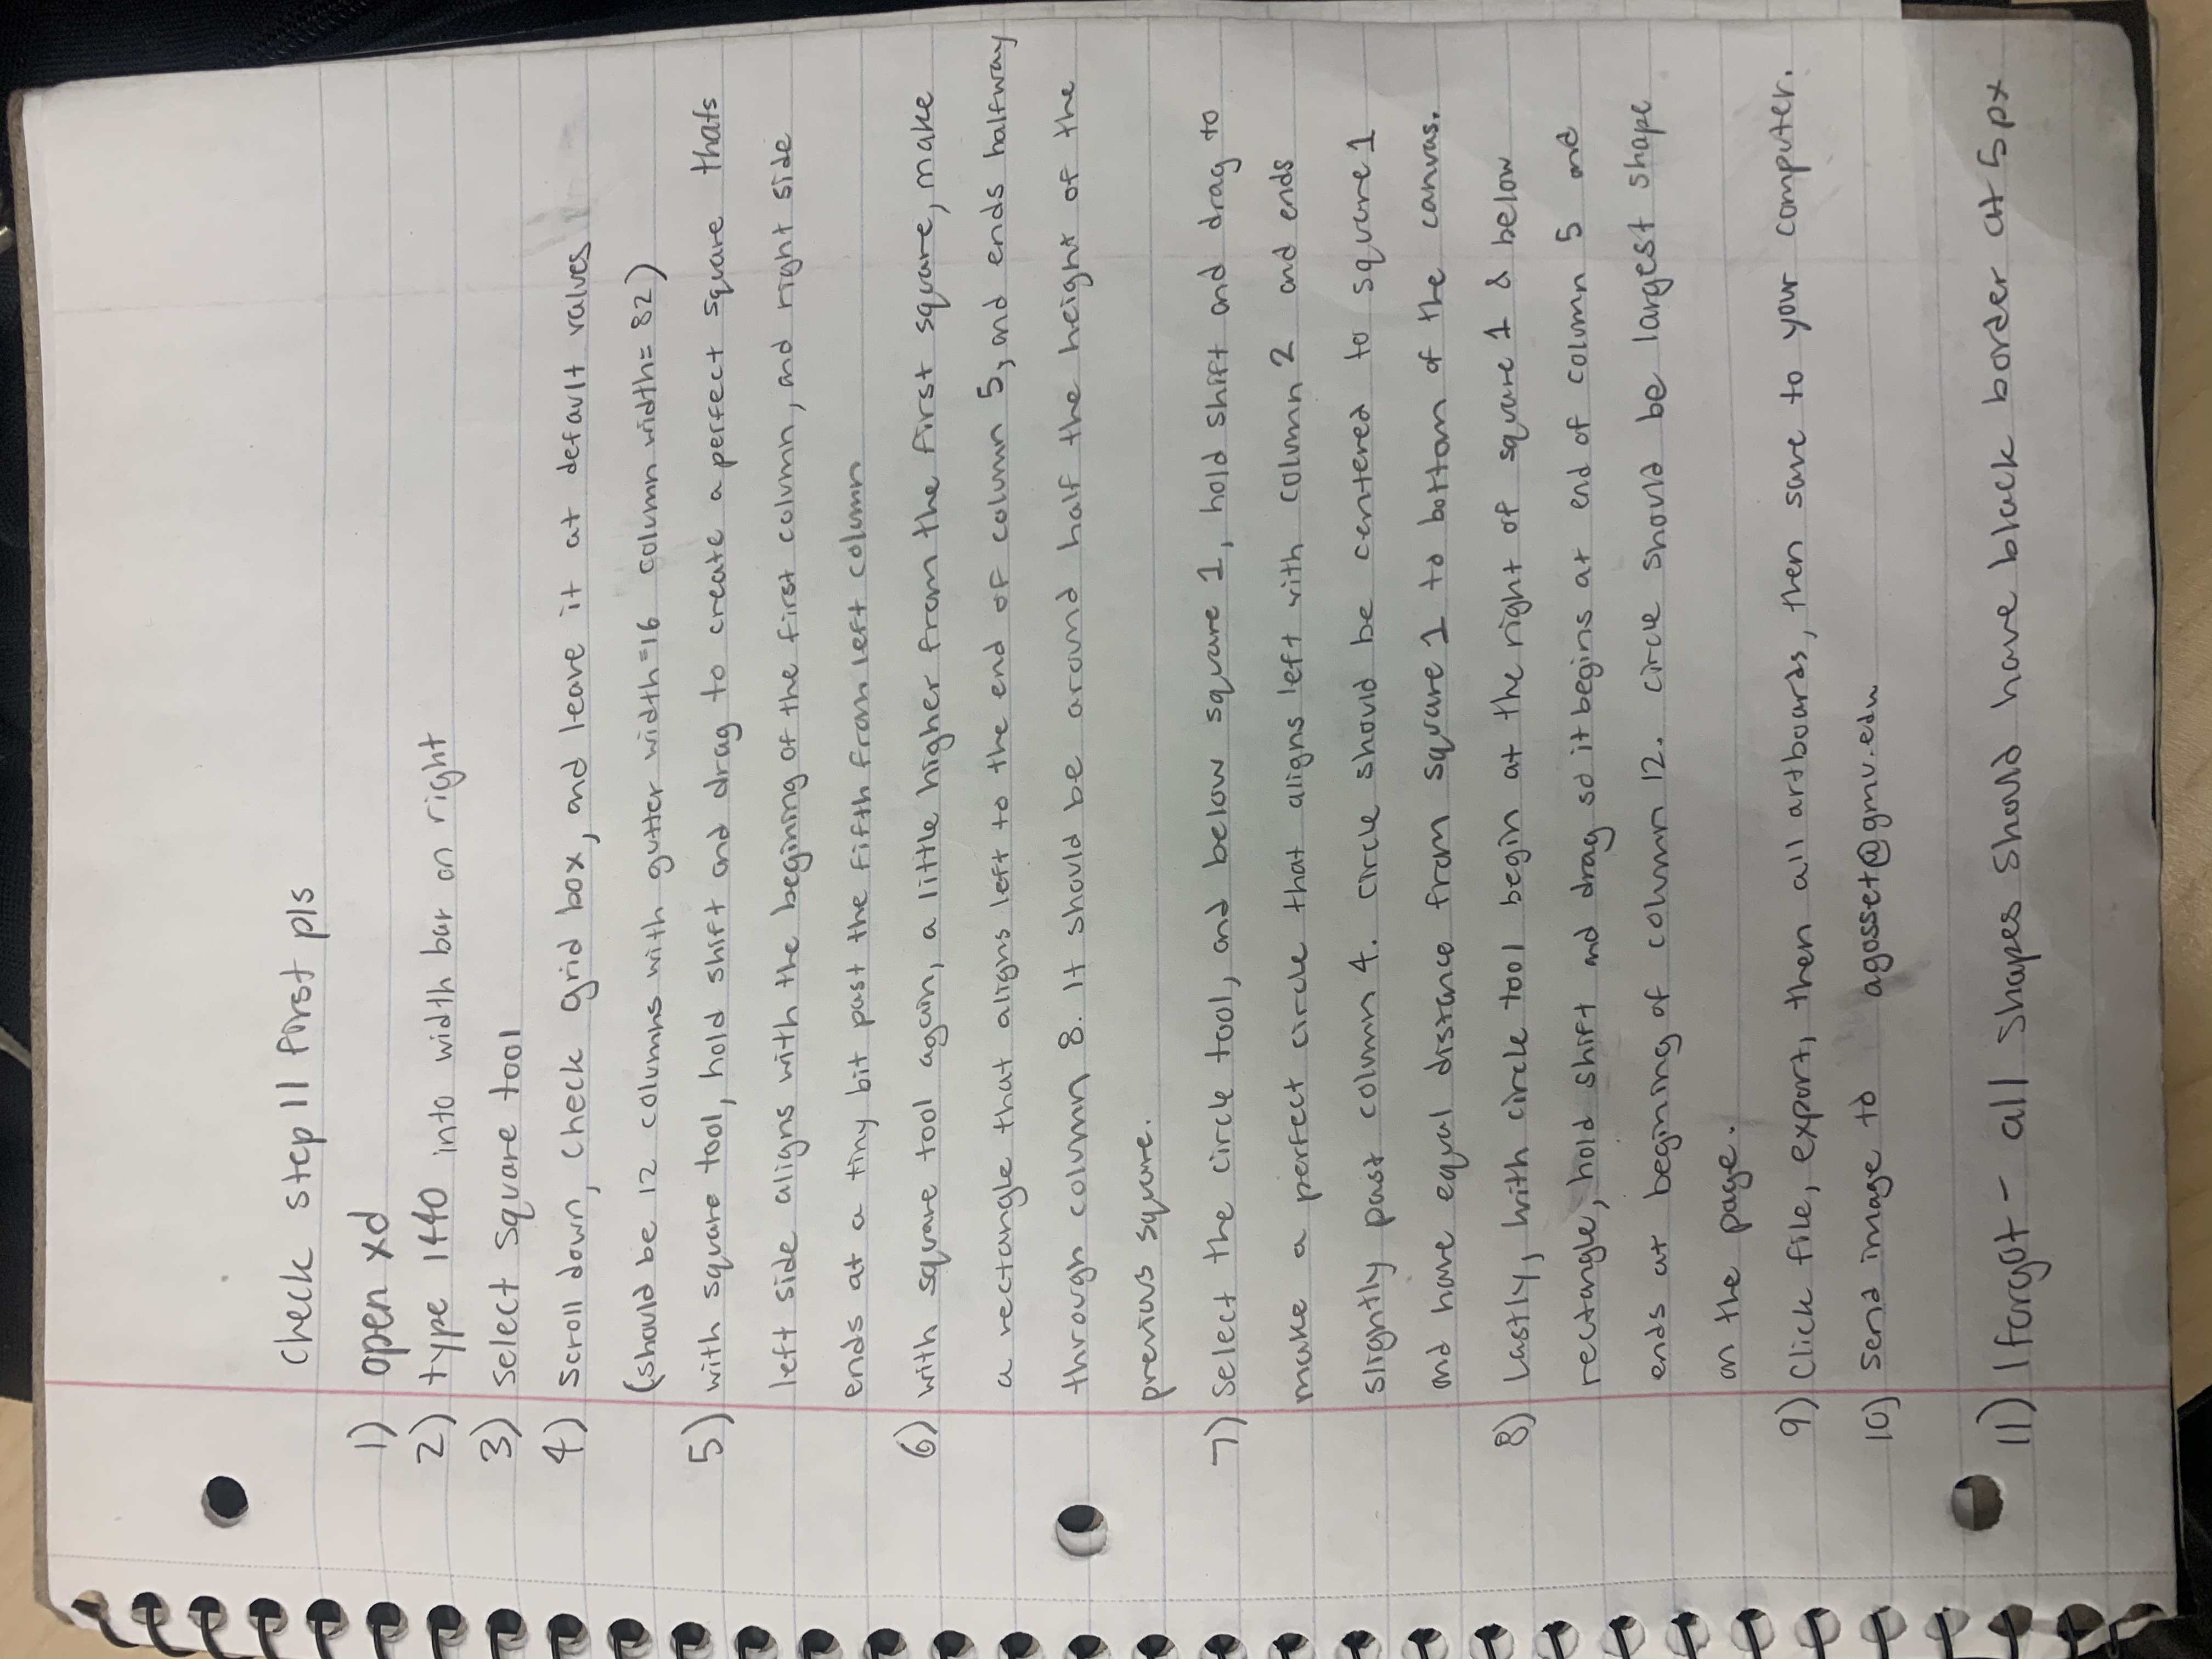 check step 11 first pls
1) open xd
2) type 1440 into width bar on right
3) select square tool
4) scroll down, check grid box, and leave it at default values
(should be 12 columns with gutter width=16 column width= 82)
5) with square tool, hold shift and drag to create a perfect square thats
left side aligns with the begining of the first column, and right side
ends at a tiny bit past the fifth from left column
6) with square tool again, a little higher from the first square, make
a rectangle that aligns left to the end of column 5, and ends halfway
through column 8. It should be around half the height of the
previous square.
7) select the circle tool, and below square 1, hold shift and drag to
make a perfect circle that aligns left with column 2 and ends
slightly past column 4. circle should be centered to square 1
and have equal distance from square 1 to bottom of the canvas.
8) Lastly, with circle tool begin at the right of square 1 & below
rectangle, hold shift and drag so it begins at end of column 5 and
ends at begining of column 12. circle should be largest shape
on the page.
9) Click file, export, then all artboards, then save to your computer.
10) send image to agosset@gmu.edu
11) I forgot - all shapes should have black border at 5px